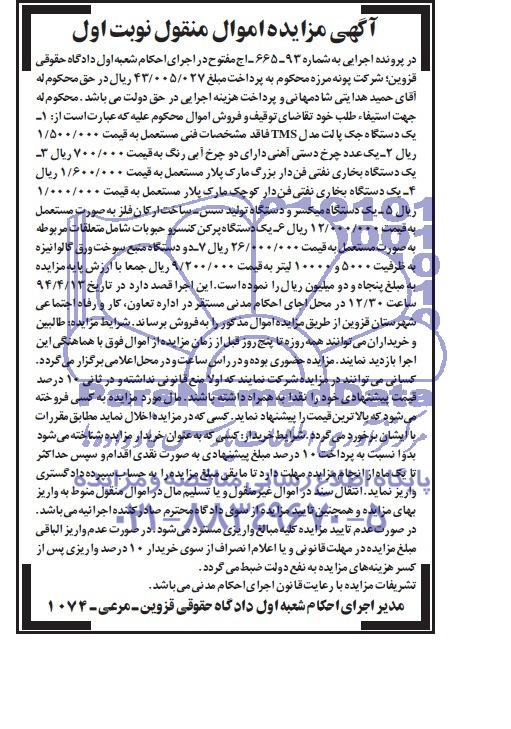 آگهی مزایده اموال منقول نوبت اول
در پرونده اجرایی به شماره ۹۳ـ۶۶۵ـ اج مفتوح در اجرای احکام شعبه اول دادگاه حقوقی
قزوین؛ شرکت پونه مرزه محکوم به پرداخت مبلغ ۴۳/۰۰۵/۰۲۷ ریال در حق محکوم له
آقای حمید هدایتی شادمهانی و پرداخت هزینه اجرایی در حق دولت می باشد . محکوم له
جهت استیفاء طلب خود تقاضای توقیف و فروش اموال محکوم علیه که عبارت است از: ۱ـ
یک دستگاه جک پالت مدل TMS فاقد مشخصات فنی مستعمل به قیمت ۱/۵۰۰/۰۰۰
ریال ۲ـ یک عدد چرخ دستی آهنی دارای دو چرخ آبی رنگ به قیمت ۷۰۰/۰۰۰ ریال ۳ـ
یک دستگاه بخاری نفتی فن دار بزرگ مارک پلار مستعمل به قیمت ۱/۶۰۰/۰۰۰ ریال
۴ـ یک دستگاه بخاری نفتی فن دار کوچک مارک پلار مستعمل به قیمت ۱/۰۰۰/۰۰۰
ریال ۵ـ یک دستگاه میکسر و دستگاه تولید سس ـ ساخت ارکان فلز به صورت مستعمل
به قیمت ۱۲/۰۰۰/۰۰۰ ریال ۶ـ یک دستگاه پرکن کنسرو حبوبات شامل متعلقات مربوطه
به صورت مستعمل به قیمت ۲۶/۰۰۰/۰۰۰ ریال ۷ـ دو دستگاه منبع سوخت ورق گالوانیزه
به ظرفیت ۵۰۰۰ و ۱۰۰۰۰ لیتر به قیمت ۹/۲۰۰/۰۰۰ ریال جمعا با ارزش پایه مزایده
به مبلغ پنجاه و دو میلیون ریال را نموده است. این اجرا قصد دارد در تاریخ ۹۴/۴/۱۳
ساعت ۱۲/۳۰ در محل اجای احکام مدنی مستقر در اداره تعاون، کار و رفاه اجتماعی
شهرستان قزوین از طریق مزایده اموال مذکور را به فروش برساند. شرایط مزایده: طالبین
و خریداران می توانند همه روزه تا پنج روز قبل از زمان مزایده از اموال فوق با هماهنگی این
اجرا بازدید نمایند. مزایده حضوری بوده و در راس ساعت و در محل اعلامی برگزار می گردد.
کسانی می توانند در مزایده شرکت نمایند که اولا منع قانونی نداشته و در ثانی ۱۰ درصد
قیمت پیشنهادی خود را نقدا به همراه داشته باشند. مال مورد مزایده به کسی فروخته
می شود که بالاترین قیمت را پیشنهاد نماید. کسی که در مزایده اخلال نماید مطابق مقررات
با ایشان برخورد می گردد. شرایط خریدار: کسی که به عنوان خریدار مزایده شناخته می شود
بدوا نسبت به پرداخت ۱۰ درصد مبلغ پیشنهادی به صورت نقدی اقدام و سپس حداکثر
تا یک ماه از انجام مزایده مهلت دارد تا مابقی مبلغ مزایده را به حساب سپرده دادگستری
واریز نماید. انتقال سند در اموال غیرمنقول و یا تسلیم مال در اموال منقول منوط به واریز
بهای مزایده و همچنین تایید مزایده از سوی دادگاه محترم صادرکننده اجرائیه می باشد.
در صورت عدم تایید مزایده کلیه مبالغ واریزی مسترد می شود. در صورت عدم واریز الباقی
مبلغ مزایده در مهلت قانونی و یا اعلام انصراف از سوی خریدار ۱۰ درصد واریزی پس از
کسر هزینه های مزایده به نفع دولت ضبط می گردد .
تشریفات مزایده با رعایت قانون اجرای احکام مدنی می باشد.
مدیر اجرای احکام شعبه اول دادگاه حقوقی قزوین ـ مرعی ـ ۱۰۷۴
ParsNamadData
پایگاه اطلاع رسانی مناقصه و مزایده
۰۲۱-۸۸۳۴۹۶۷۰-۵